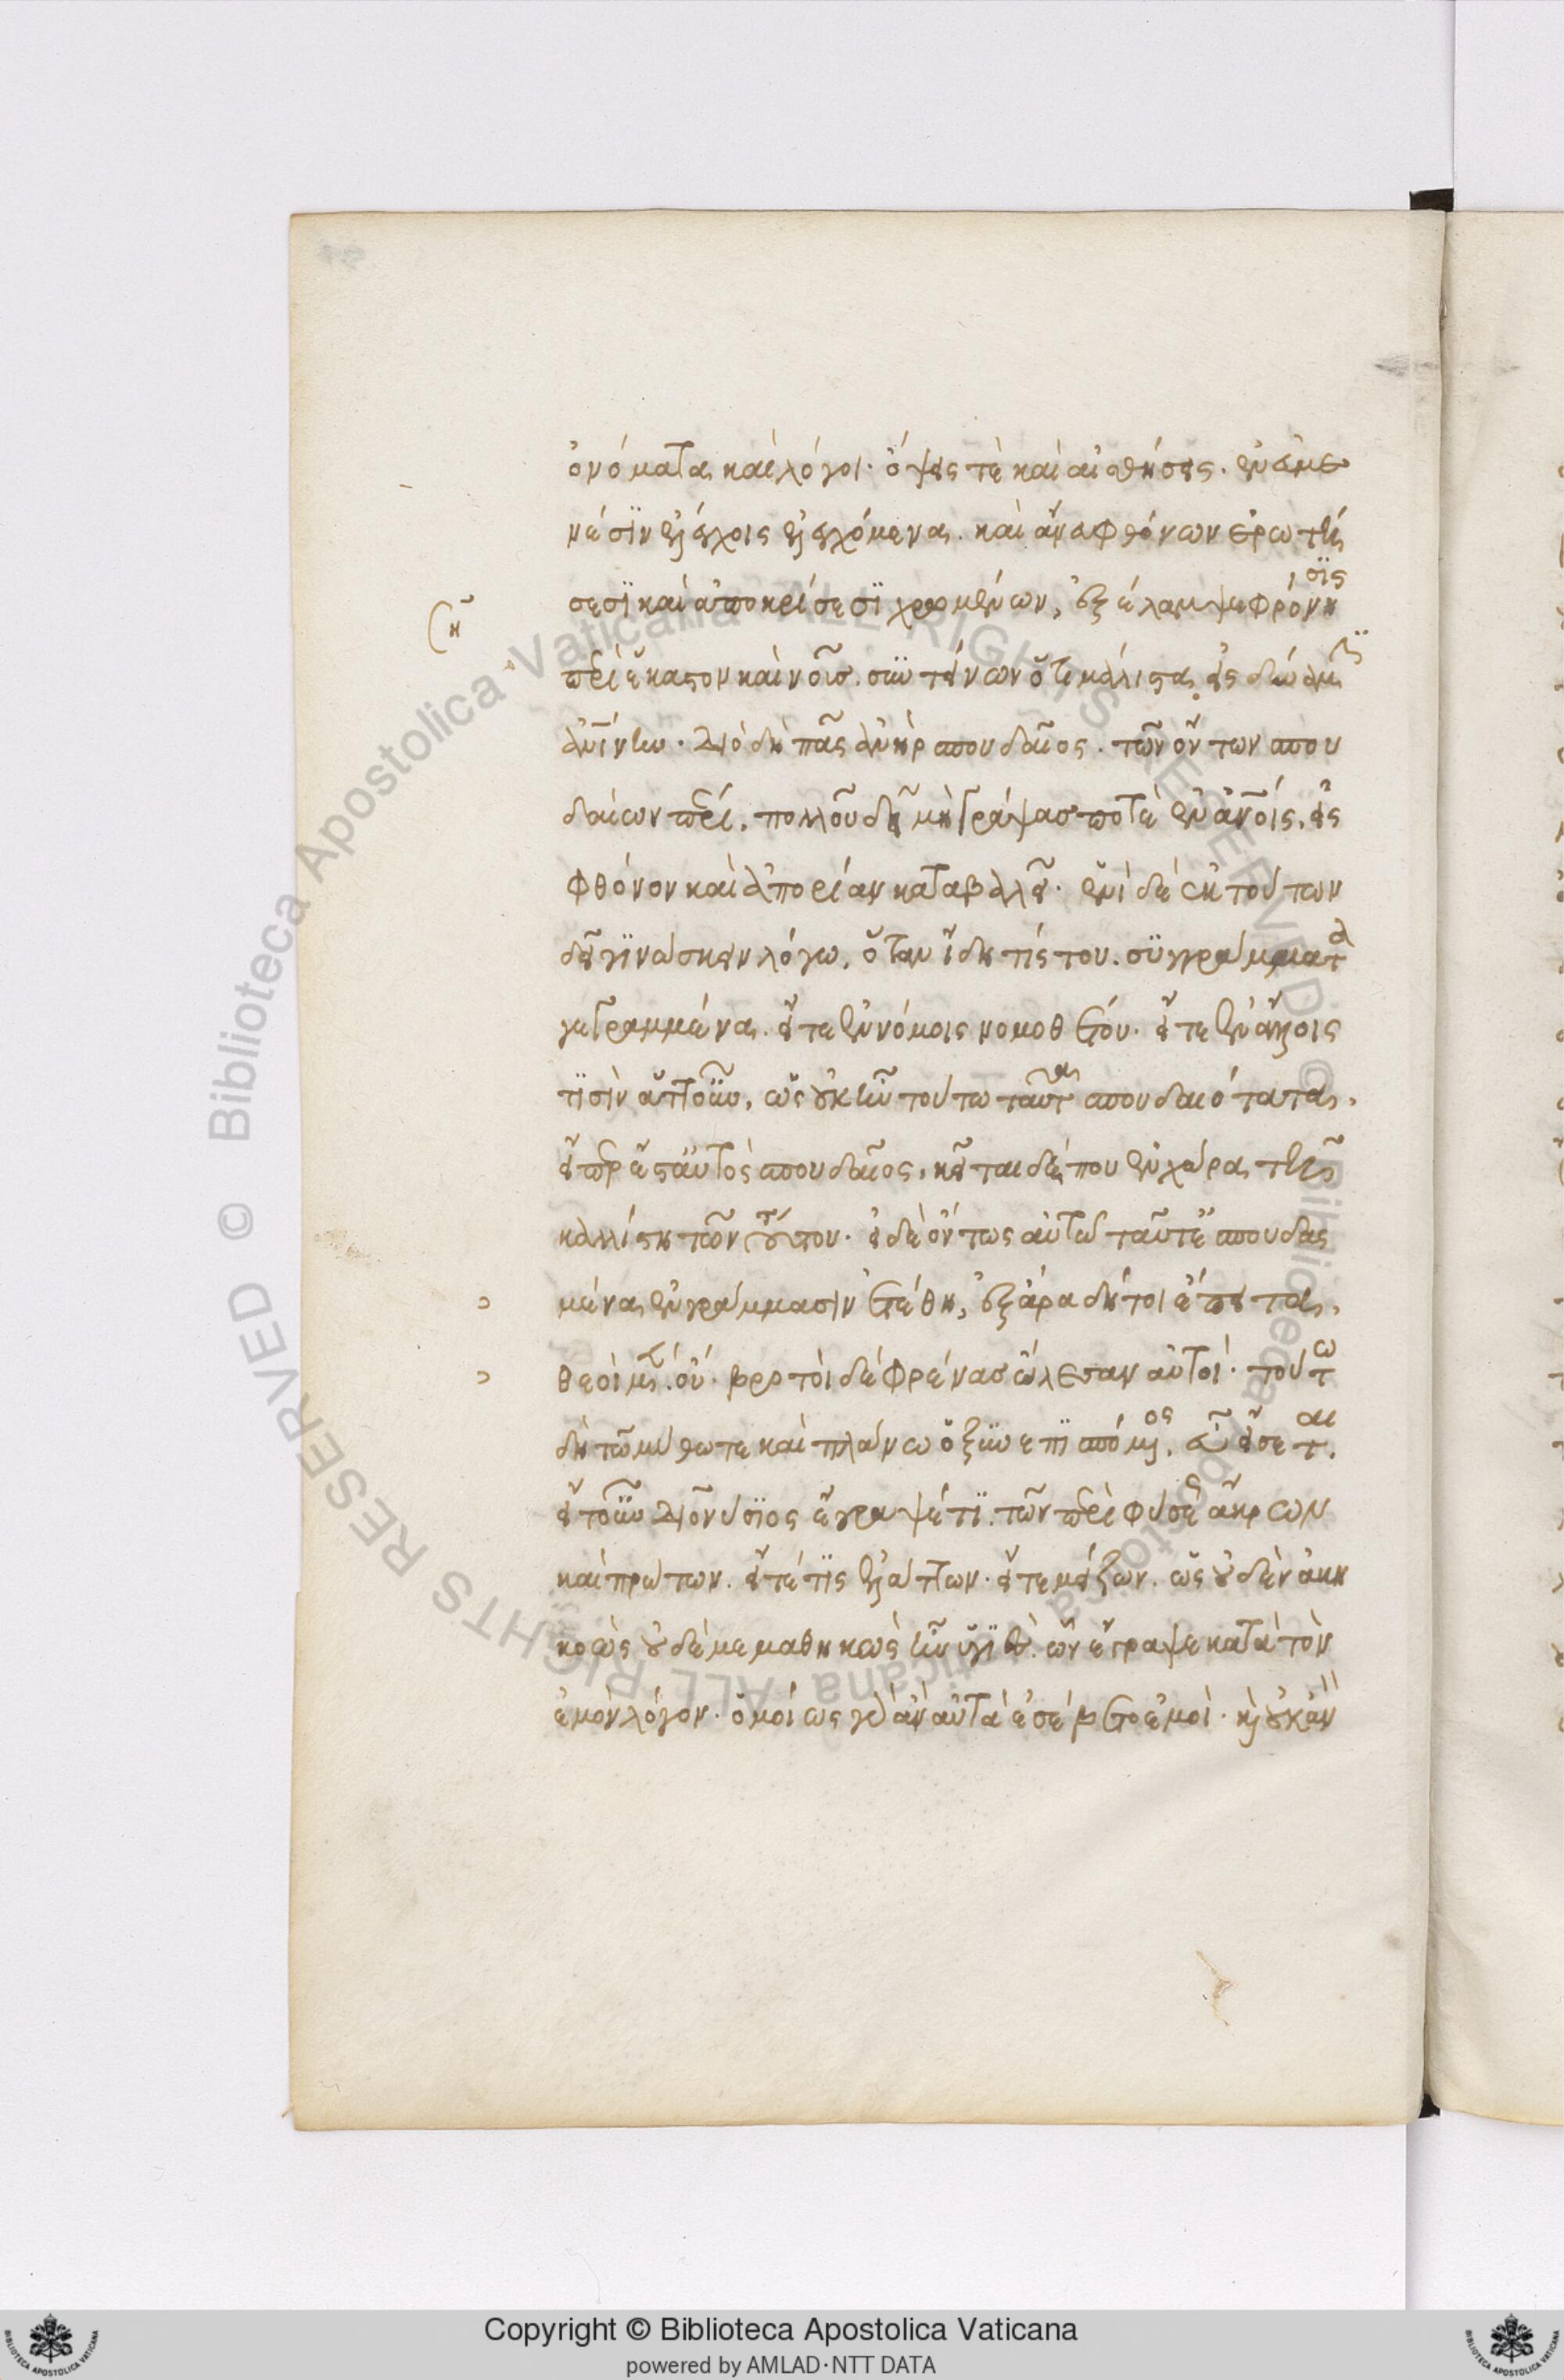 ὀνόματα καὶ λόγοι· ὄψεις τὲ καὶ αἰσθήσεις. ἐν εὐμε
νέσιν ἐλέγχοις ἐλεγχόμενα. καὶ ἄνευ φθόνων ἐρωτή
σεσι καὶ ἀποκρίσεσι χρωμένων, ἐξέλαμψε φρόνησις
περὶ ἕκαστον καὶ νοῦς. συντείνων ὅτι μάλιστα εἰς δύναμιν
ἀνθρωπίνην. διὸ δὴ πᾶς ἀνὴρ σπουδαῖος. τῶν ὄντων σπου
δαίων πέρι, πολλοῦ δεῖ μὴ γράψας ποτὲ ἐν ἀνοις, εἰς
φθόνον καὶ ἀπορίαν καταβαλεῖ. ἑνὶ δὲ ἐκ τούτων
δεῖ γινώσκειν λόγω, ὅταν ἴδη τίς του συγγράμματα
γεγραμμένα. εἴτε ἐν νόμοις νομοθέτου. εἴτε ἐν ἄλλοις
τισὶν ἄττ' οὖν, ὡς οὐκ ἦν τούτω ταῦτα σπουδαιότατα,
εἴπερ ἔστ' αὐτὸς σπουδαῖος, κεῖται δέ που ἐν χώρα τῆ
καλλίστη τῶν τούτου. εἰ δὲ ὄντως αὐτῶ ταῦτ' ἐσπουδασ
μένα ἐν γράμμασιν ἐτέθη, ἐξ ἄρα δή τοι ἔπειτα,
θεοὶ μὲν οὔ. βροτοὶ δὲ φρένας ὤλεσαν αὐτοί. τούτω
δὴ τῶ μύθω τε καὶ πλάνω ὁ ξυνεπισπόμενος, εὖ εἴσεται.
εἴτ' οὖν Διονύσιος ἔγραψέ τι τῶν περὶ φύσεως ἄκρων
καὶ πρώτων. εἴτέ τις ἐλάττων. εἴτε μείζων. ὡς οὐδὲν ἀκη
κοὼς οὐδὲ μεμαθηκὼς ἦν ὑγιὲς ὧν ἔγραψε κατὰ τὸν
ἐμὸν λόγον. ὁμοίως γὰρ ἂν αὐτὰ ἐσέβετο ἐμοί. καὶ οὐκ ἂν
Copyright © Biblioteca Apostolica Vaticana
powered by AMLAD·NTT DATA